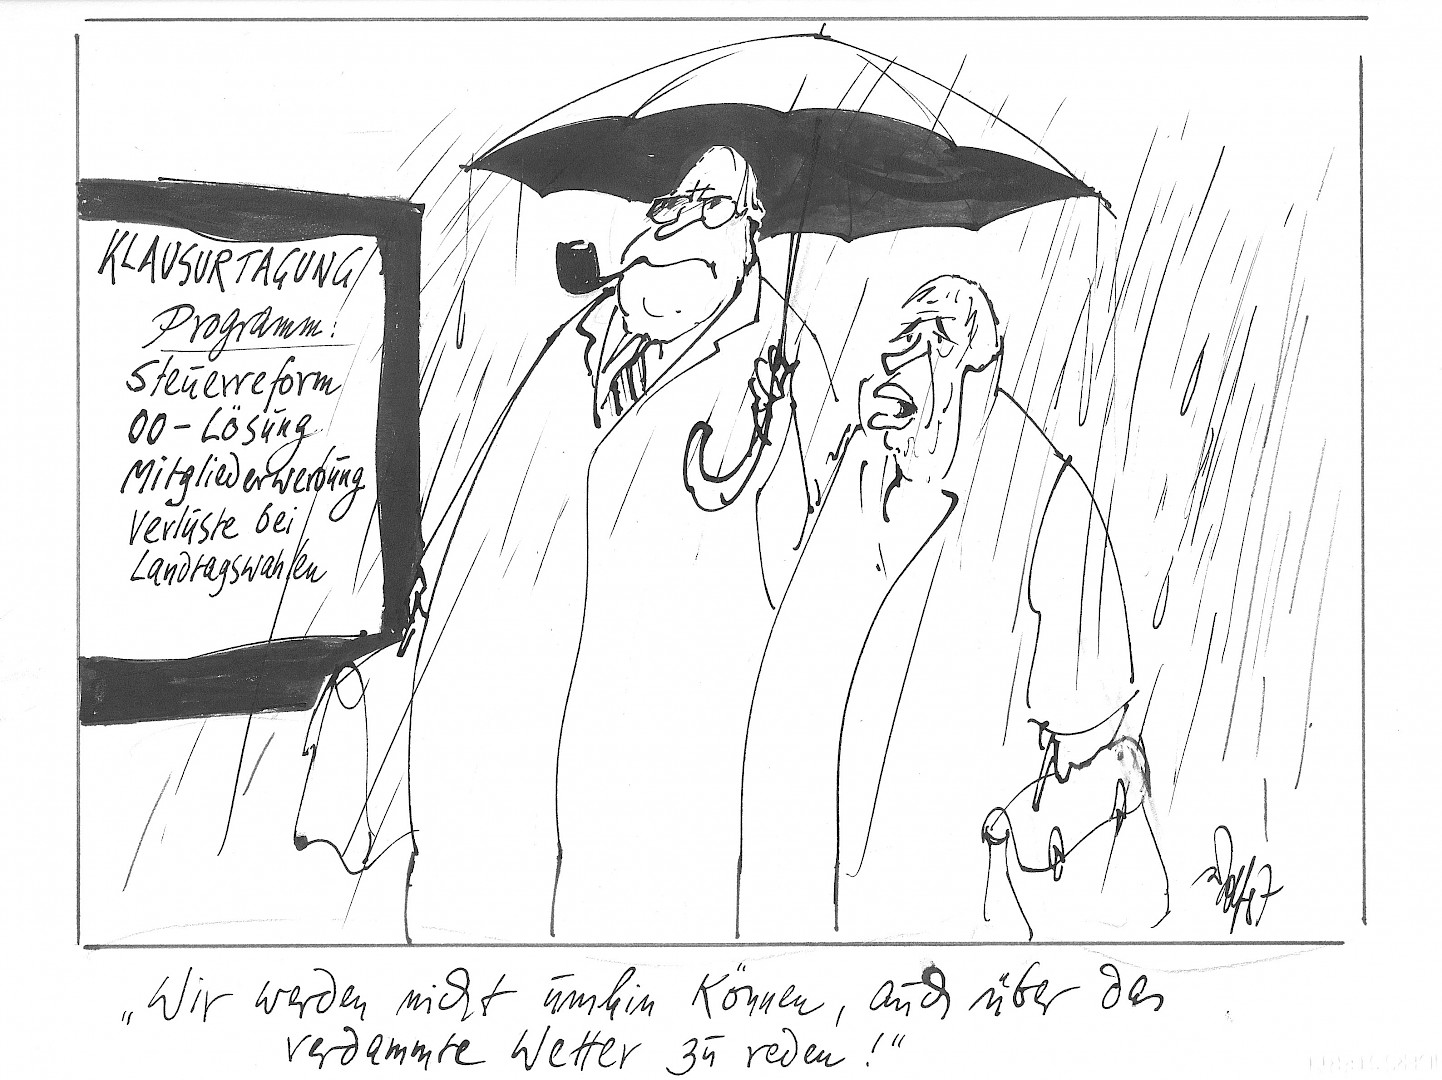 KLAUSURTAGUNG
Programm:
Steuerreform
00-Lösung
Mitgliederwerbung
Verluste bei
Landtagswahlen
„Wir werden nicht umhin können, auch über das
verdammte Wetter zu reden!“